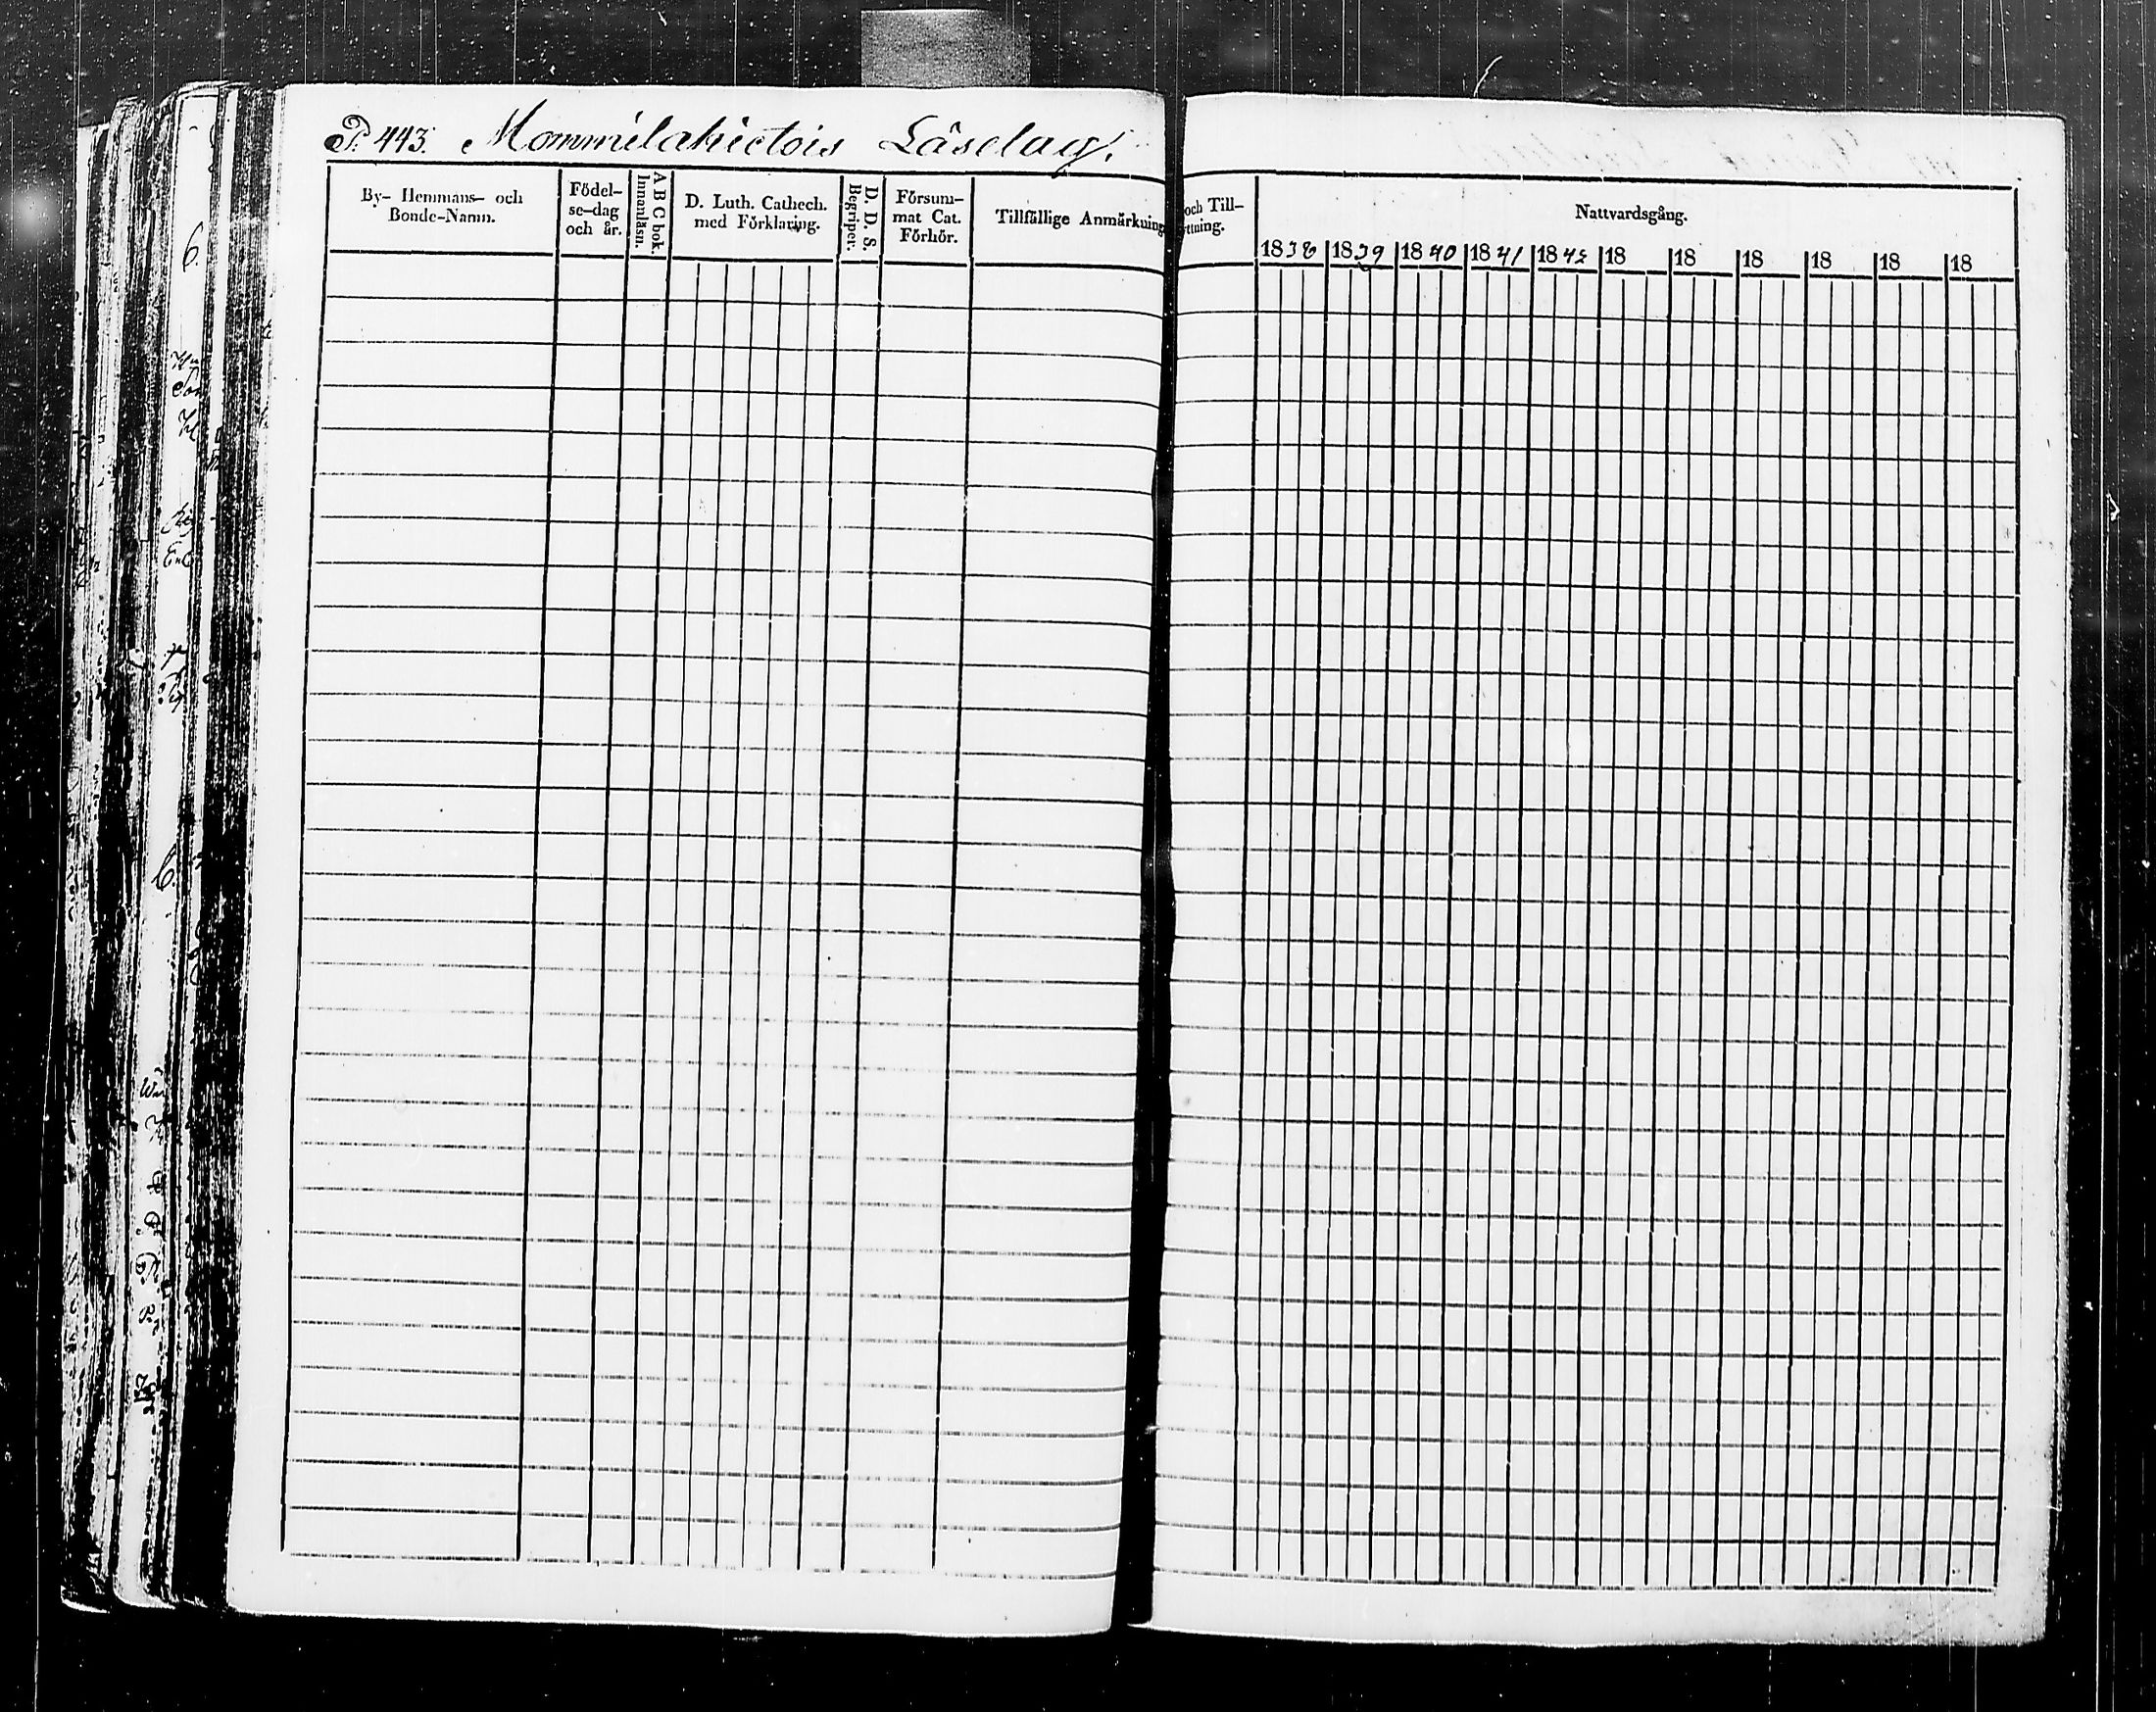 P. 443. Mommilahietois Läselag.
By- Hemmans- och Bonde-Namn.
Födelse-dag och år.
A B C bok.
Innanläsn.
D. Luth. Cathech. med Förklaring.
D. D. S.
Begriper.
Försummat Cat. Förhör.
Tillfällige Anmärkning
och Till-
ttning.
Nattvardsgång.
1838 1839 1840 1841 1842 18 18 18 18 18 18